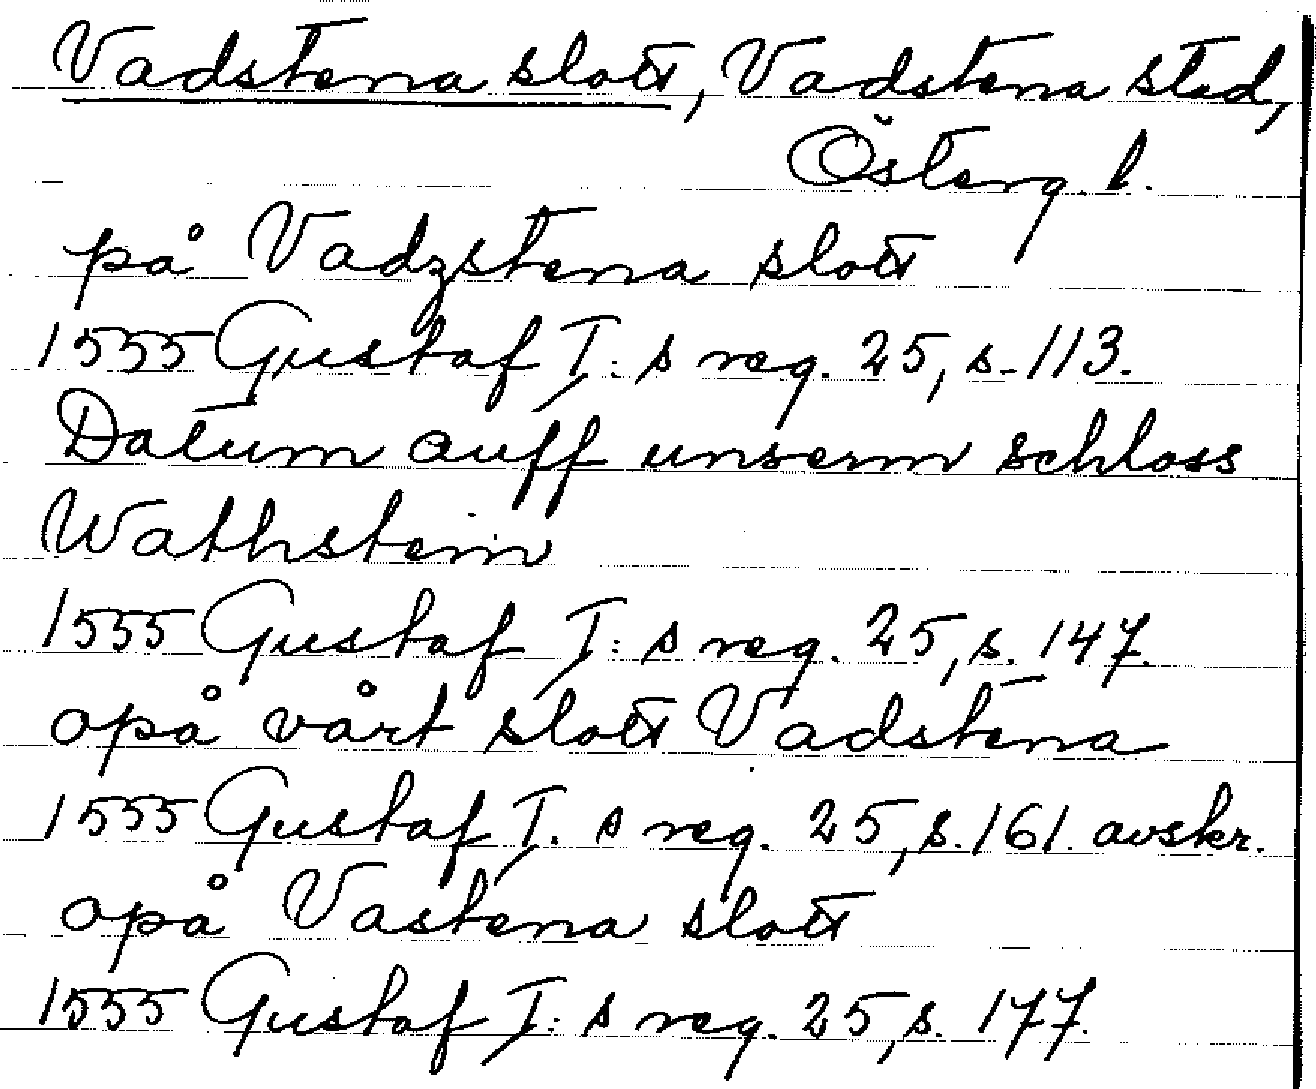 Vadstena slott, Vadstena stad,
Österg. l.
på Vadzstena slott
1555 Gustaf I: s reg. 25, s. 113.
Datum auff unserm schloss
Wathstein
1555 Gustaf I: s reg. 25, s. 147.
opå vårt slott Vadstena
1555 Gustaf I. s reg. 25, s. 161. avskr.
opå Vastena slott
1555 Gustaf I: s reg. 25, s. 177.